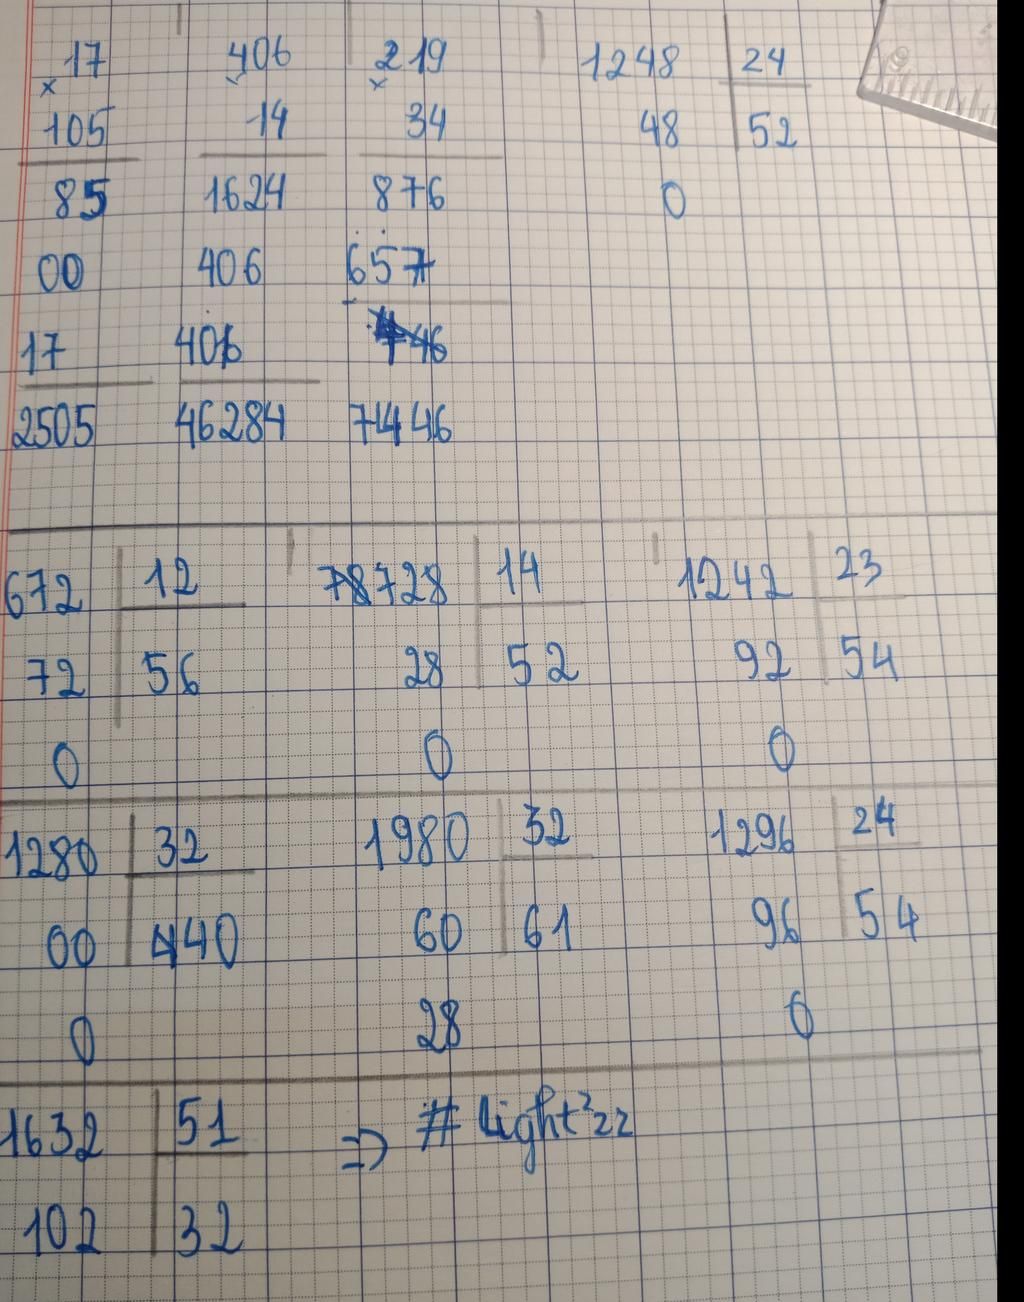 17 406 219 1248 24
x x
105 14 34 48 52
85 1624 876 0
00 406 657
17 406
2505 46284 7446
672 12 728 14 1242 23
72 56 28 52 92 54
0 0 0
1280 32 1980 32 1296 24
00 40 60 61 96 54
0 28 0
1632 51 => # Light²22
102 32